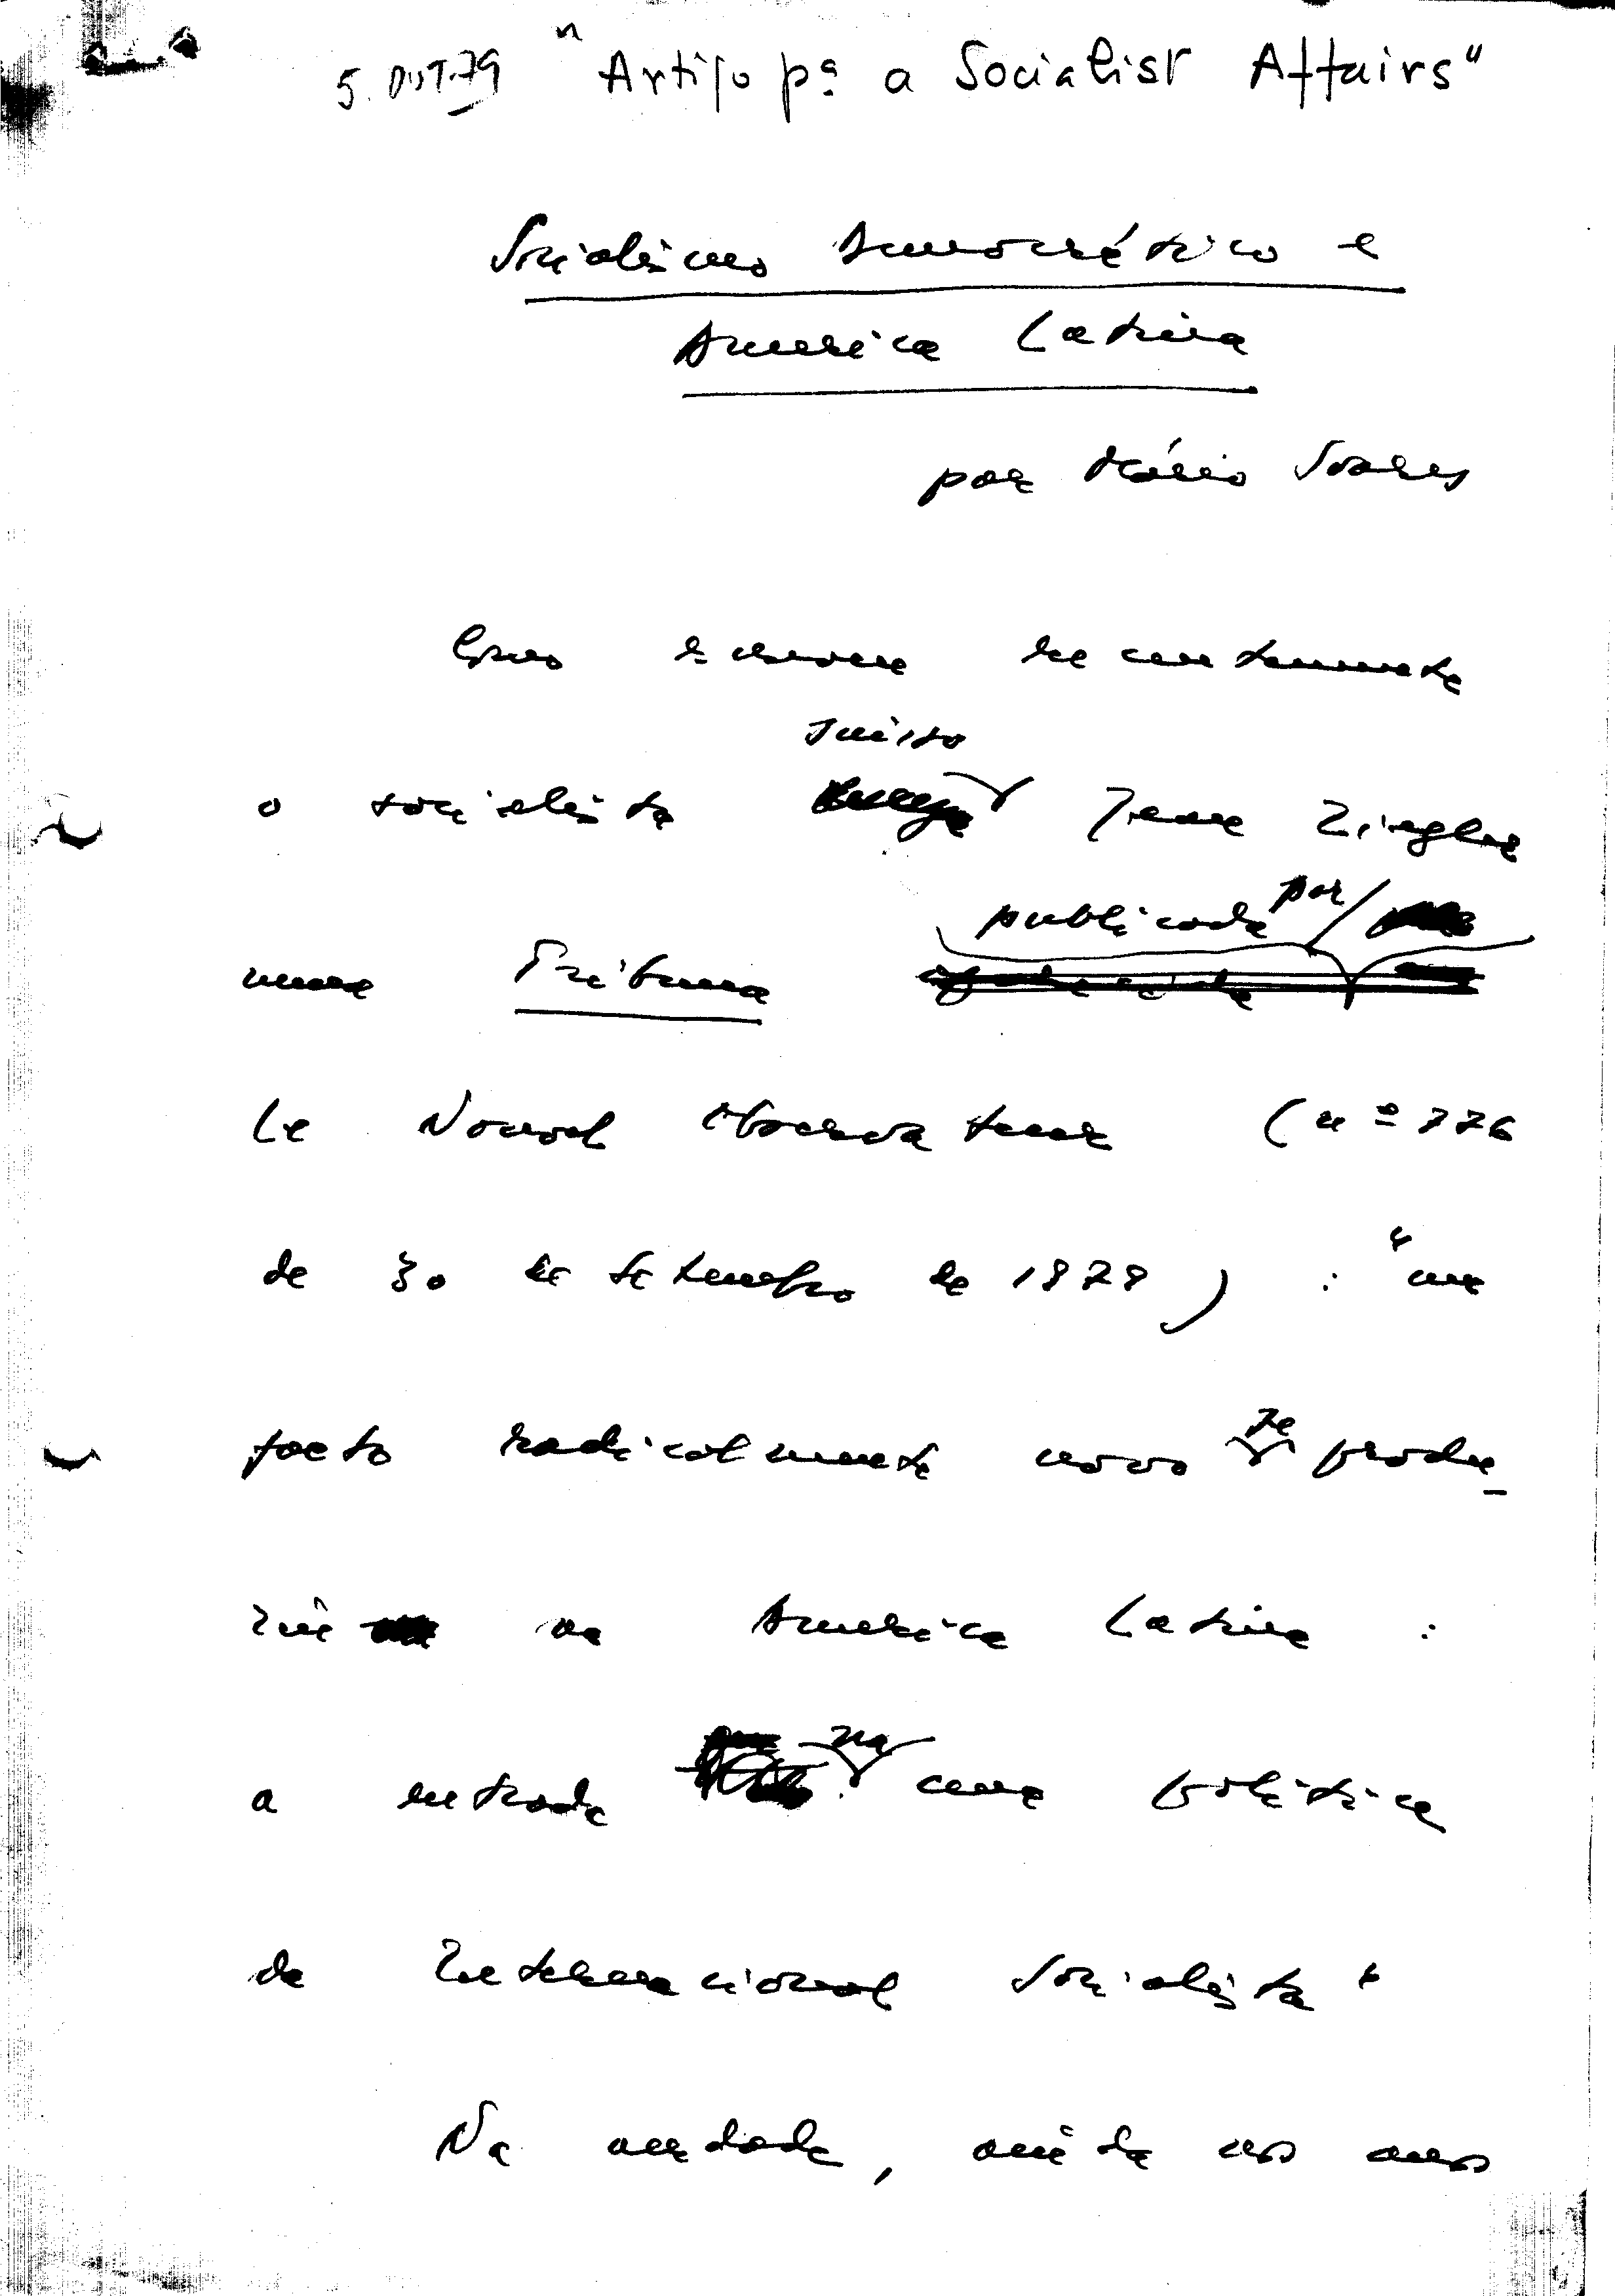 5. OUT. 79 "Artigo pª a Socialist Affairs"
Socialismo Democrático e
América Latina
por Mário Soares
Como escreveu recentemente
o socialista suisso Jean Ziegler
numa Tribuna publicada por
Le Nouvel Observateur (nº 776
de 30 de Setembro de 1979) : "um
facto radicalmente novo se produ_
ziu na América Latina :
a entrada na cena política
da Internacional Socialista"
Na verdade, ainda nos anos